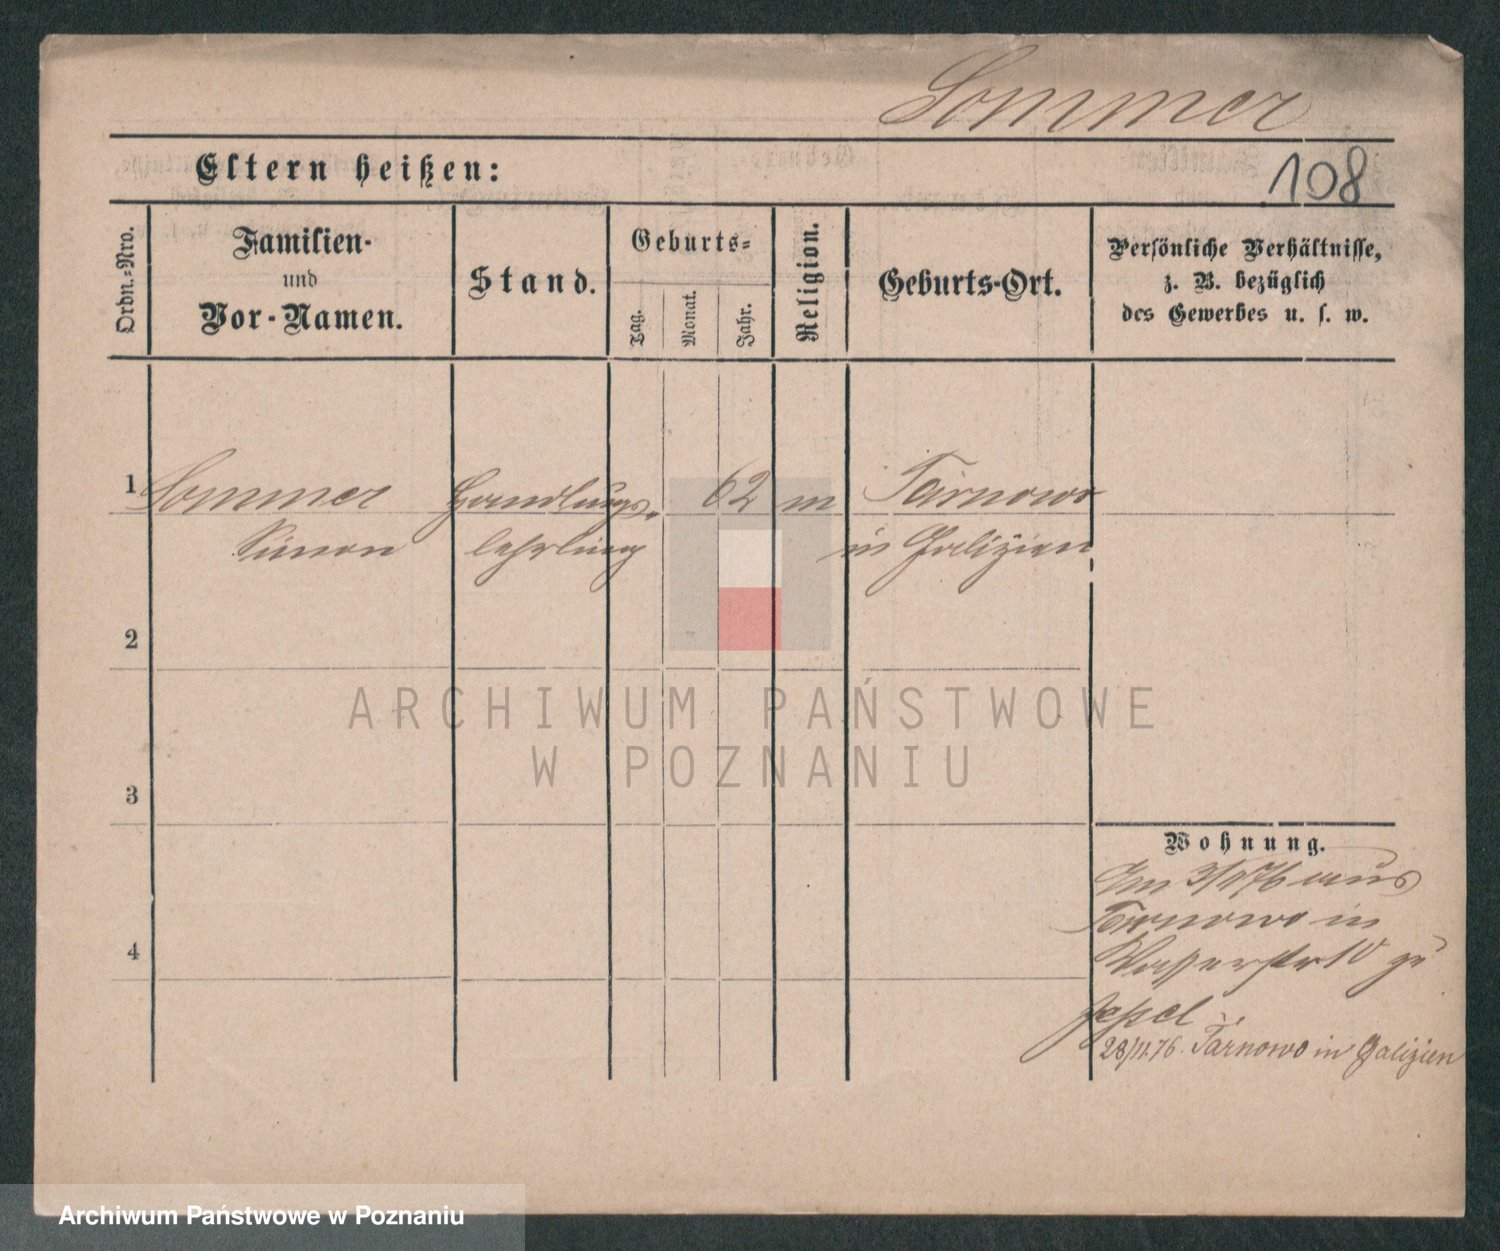 Sommer
Eltern heißen:
108
Ordn.-Nro.
Familien-
und
Vor-Namen.
Stand.
Geburts-
Tag.
Monat.
Jahr.
Religion.
Geburts-Ort.
Persönliche Verhältnisse,
z. B. bezüglich
des Gewerbes u. s. w.
1 Sommer Handlungs- 62 m Tarnowo
Simon lehrling in Galizien
2
ARCHIWUM PAŃSTWOWE
W POZNANIU
3
Wohnung.
Am 3/1 76 aus
Tarnowo in
4
Wasserstr 10 zu
28/11.76. Tarnowo in Galizien
Archiwum Państwowe w Poznaniu